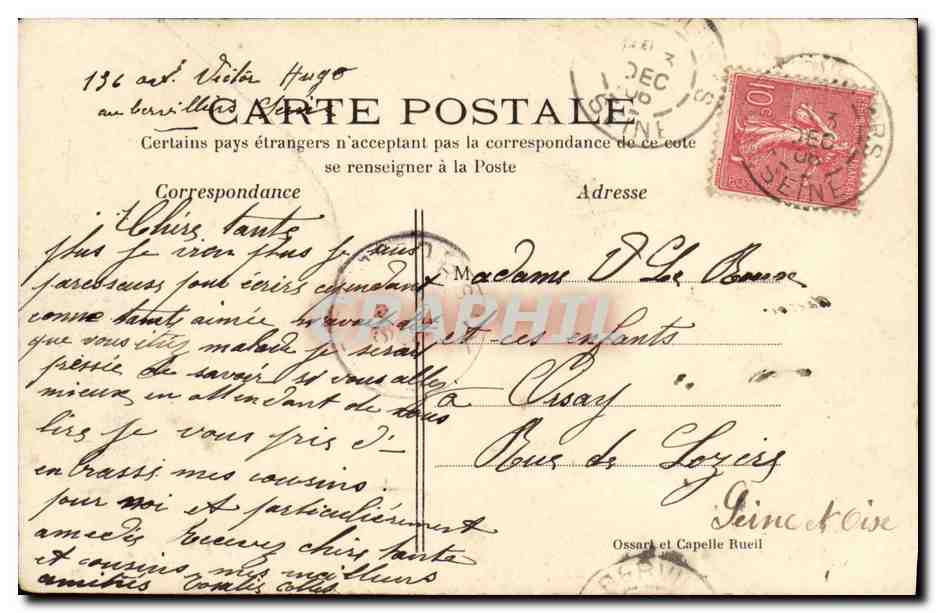 136 av. Victor Hugo
aubervilliers Seine
CARTE POSTALE
Certains pays étrangers n'acceptant pas la correspondance de ce côté
se renseigner à la Poste
Correspondance
Adresse
Chère tante
plus je vien plus je suis
paresseuse pour écrire cependant
comme tante aimée m'avait dit
que vous étiez malade je serai
pressée de savoir si vous allez
mieux, en attendant de vous
lire je vous prie d'
embrassé mes cousins
pour moi et particulièrement
amedé Recevez chère tante
et cousins mes meilleurs
amitiés
Madame V Le Roux
et ces enfants
à Orsay
Rue de Lozère
Seine et Oise
Ossart et Capelle Rueil
10c
3
DEC
06
SEINE
3
DEC
06
SEINE
CPAPHIL